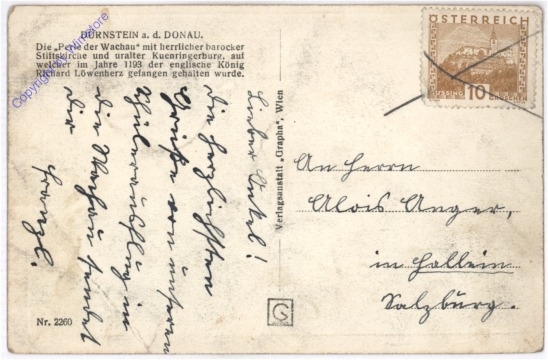 DÜRNSTEIN a. d. DONAU.
Die „Perle der Wachau“ mit herrlicher barocker
Stiftskirche und uralter Kuenringerburg, auf
welcher im Jahre 1193 der englische König
Richard Löwenherz gefangen gehalten wurde.
Lieber Onkel!
die herzlichsten
Grüße von unserem
Schülerausflug in
die Wachau sendet
dir
Franzl.
Nr. 2260
Verlagsanstalt „Grapha“, Wien
G
ÖSTERREICH
GÜSSING
10 GROSCHEN
An Herrn
Alois Anger,
in Hallein
Salzburg.